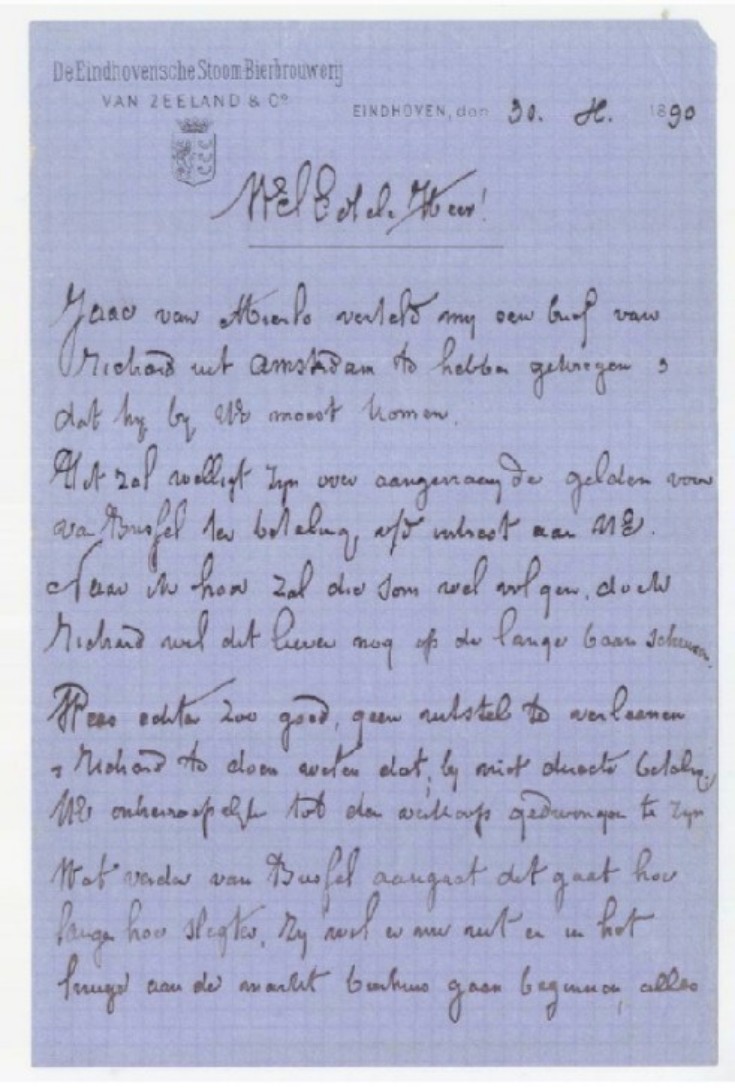 De Eindhovensche Stoom-Bierbrouwerij
VAN ZEELAND & Co
EINDHOVEN, den 30. 1890
WelEdele Heer!
van Mierlo verteld my een brief van
Richard uit Amsterdam te hebben gekregen &
dat hy by UE moest komen.
Het zal welligt zyn over aangevraagde gelden voor
van Bussel ter betaling v/d intrest aan UE.
Naar ik hoor zal die som wel volgen, doch
Richard wil dit liever nog op de lange baan schuiven.
Wees echter zoo goed, geen uitstel te verleenen
& Richard te doen weten dat, by niet directe betaling,
UE onherroepelyk tot den verkoop gedwongen te zyn
Wat verder van Bussel aangaat dit gaat hoe
langer hoe slegter, Zy wil er nu uit en in het
huisje aan de markt gaan beginnen, alles